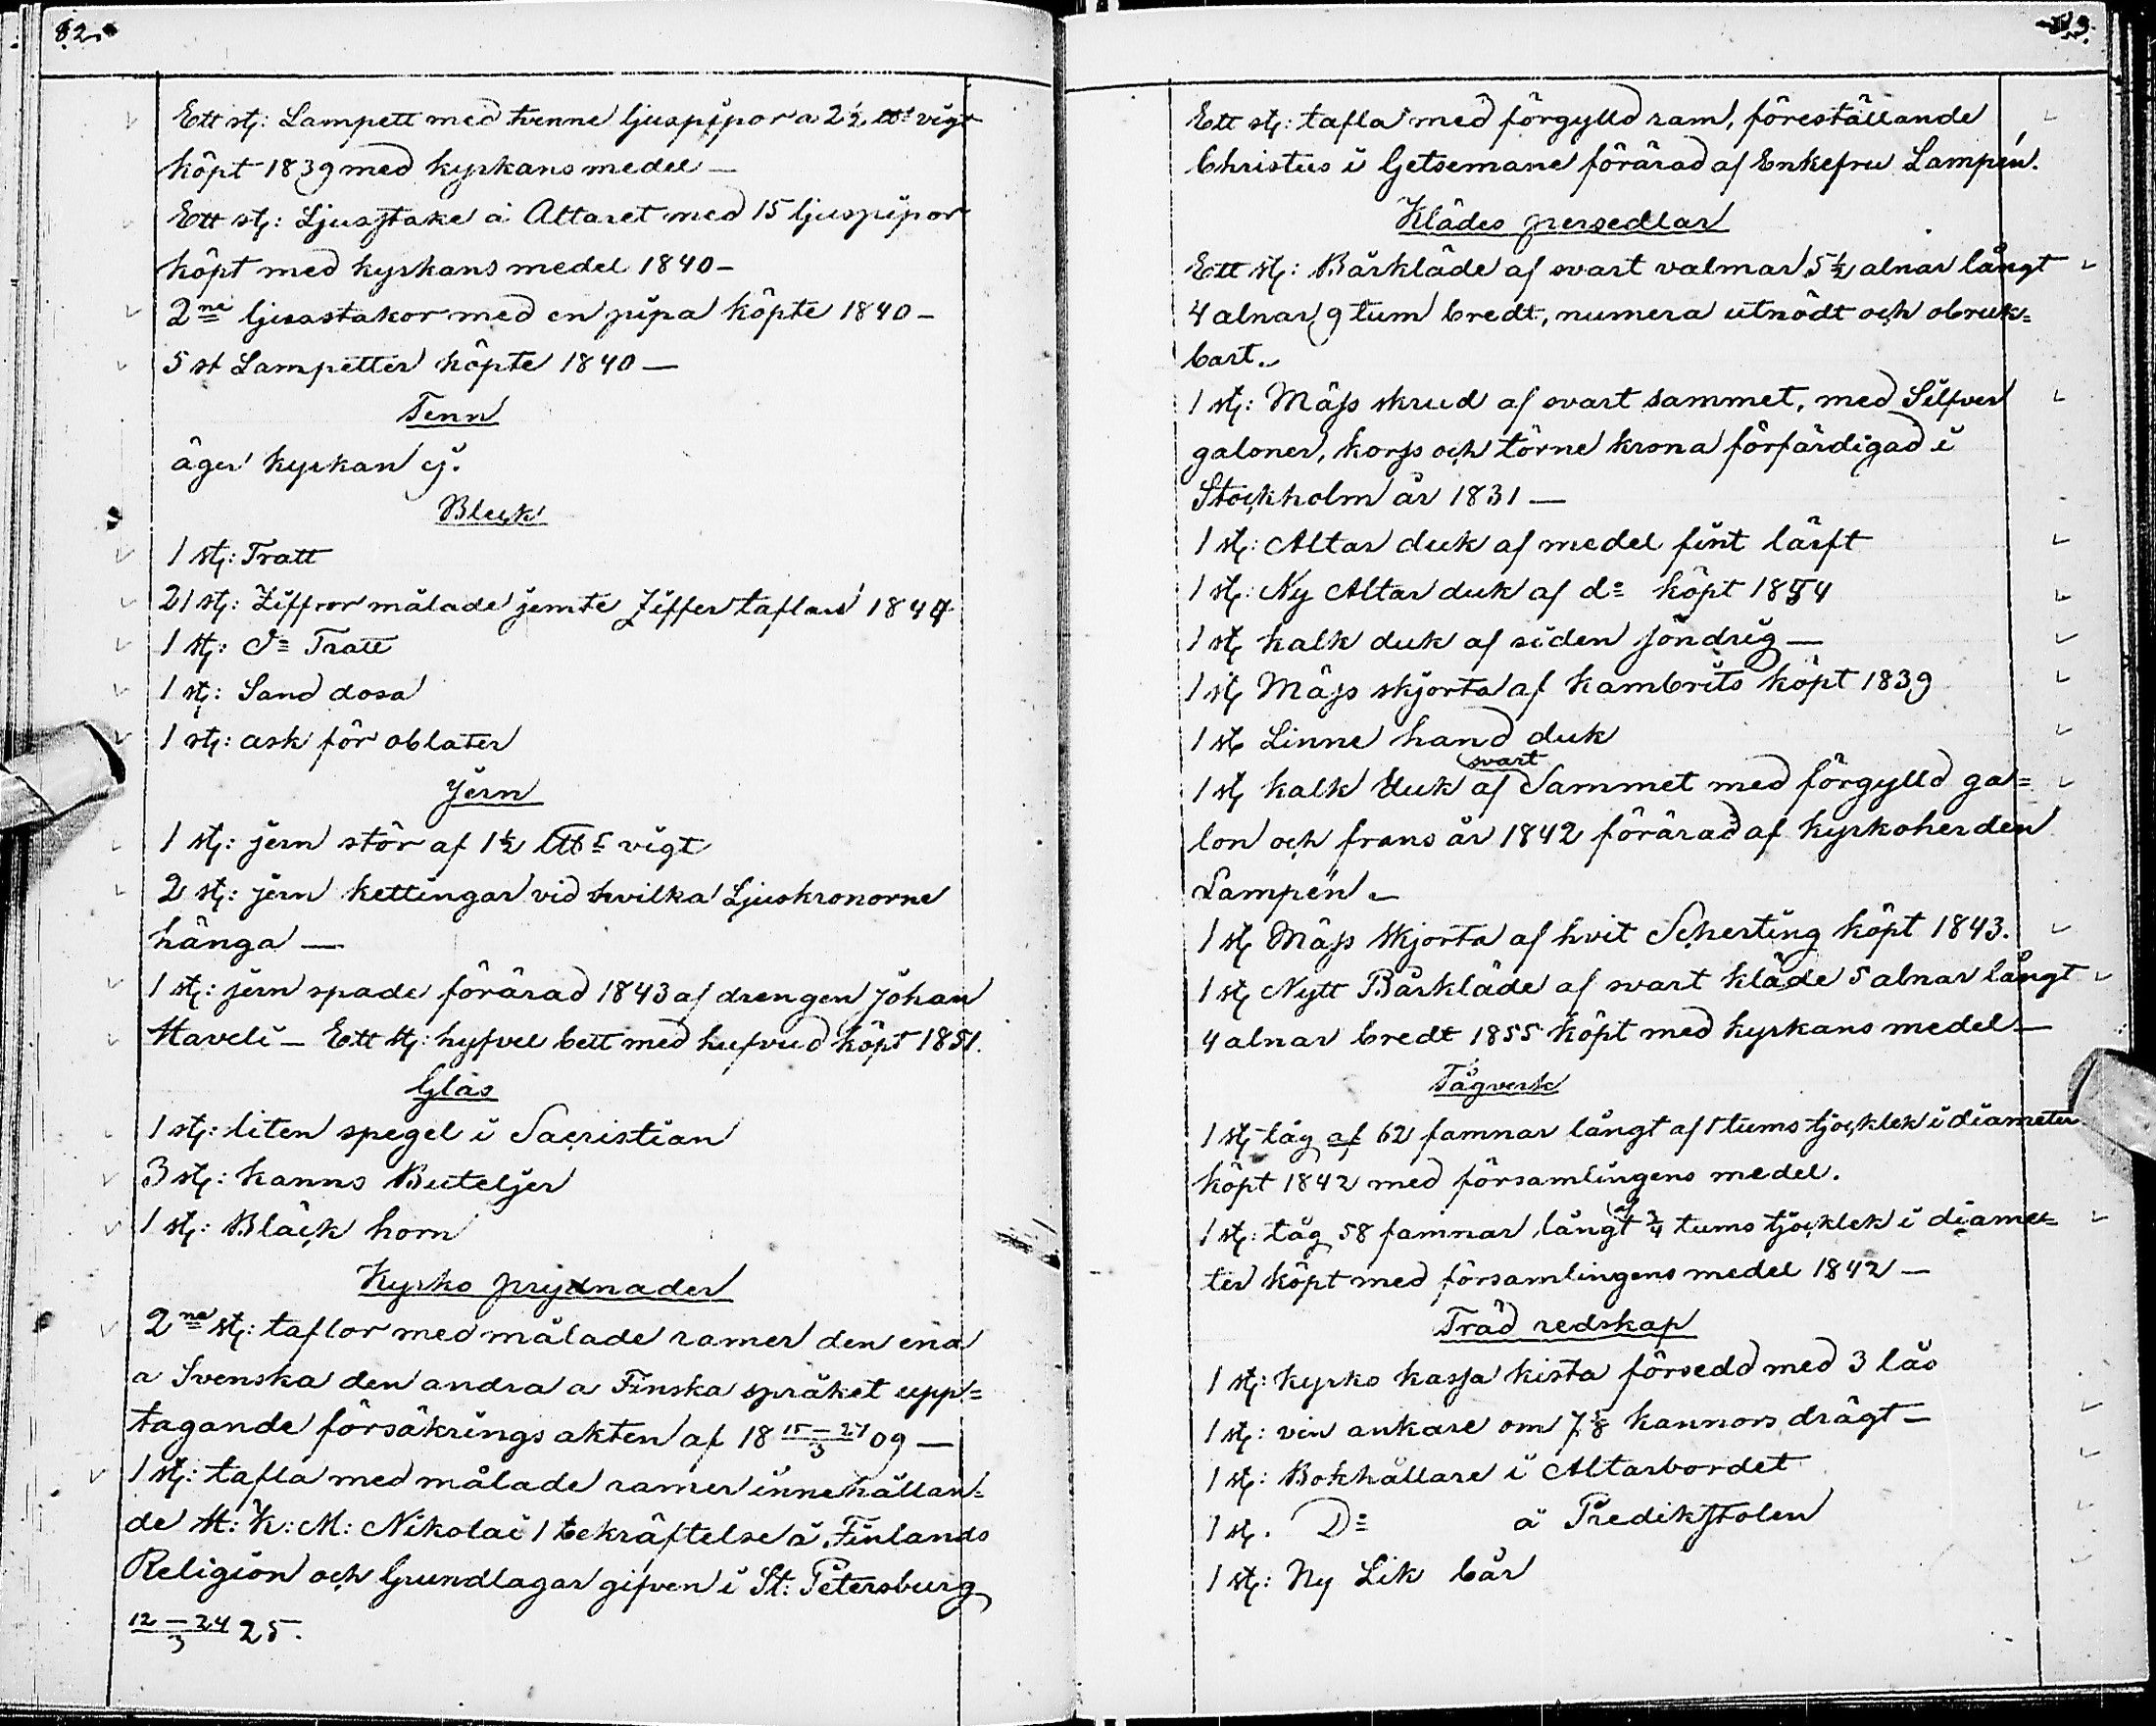 82.
Ett stÿ: Lampett med tvenne ljuspipor a 2½ ℔ vigt
köpt 1839 med kyrkans medel —
Ett st: Ljusstake å Altaret med 15 ljuspipor
köpt med kyrkans medel 1840 —
2ne ljusastakor med en pipa köpte 1840 —
5 st Lampetter köpte 1840 —
Tenn
äger kyrkan ej.
Bleck
1 st: Tratt
21 st: Ziffror målade jemte Ziffer taflan 1844
1 st: do Tratt
1 st: Sand dosa
1 st: ask för oblater
Jern
1 st: jern stör af 1½ vigt
2 st: jern kettingar vid hvilka Ljuskronorne
hänga —
1 st: jern spade förärad 1843 af drengen Johan
Haveli — Ett st: hyfvel bett med hufvud köpt 1851.
Glas
1 st: liten spegel i Sacristian
3 st: kanns Buteljer
1 st: Bläck horn
Kyrko prydnader
2ne st: taflor med målade ramer den ena
a Svenska den andra a Finska språket upp=
tagande försäkrings akten af 18 15–27/3 09 —
1 st: tafla med målade ramer innehållan=
de H: K: M: Nikolai 1 bekräftelse å Finlands
Religion och Grundlagar gifven i St: Petersburg
12–24/3 25.
Ett st: tafla med förgylld ram, föreställande
Christus i Getsemane förärad af Enkefru Lampén.
Klädes persedlar
Ett st: Bårkläde af svart valmar 5½ alnar långt
4 alnar 9 tum bredt, numera utnödt och obruk=
bart.
1 st: Mäss skrud af svart sammet, med Silfver
galoner, korss och törne krona förfärdigad i
Stockholm år 1831 —
1 st: Altar duk af medel fint lärft
1 st: Ny Altar duk af do köpt 1854
1 st kalk duk af siden söndrig —
1 st Mäss skjorta af kambrits köpt 1839
1 st Linne hand duk
1 st kalk duk af svart Sammet med förgylld ga=
lon och frans år 1842 förärad af kyrkoherden
Lampén —
1 st Mäss skjorta af hvit Scherting köpt 1843.
1 st Nytt Bårkläde af svart kläde 5 alnar långt
4 alnar bredt 1855 köpt med kyrkans medel —
Tågverk
1 st tåg af 62 famnar långt af 1 tums tjocklek i diameter
köpt 1842 med församlingens medel.
1 st: tåg 58 famnar långt af ¾ tums tjocklek i diame=
ter köpt med församlingens medel 1842 —
Träd redskap
1 st: kyrko kassa kista försedd med 3 lås
1 st: vin ankare om 7⅛ kannors drägt —
1 st: Bokhållare i Altarbordet
1 st. Do å Predikstolen
1 st: Ny Lik bår